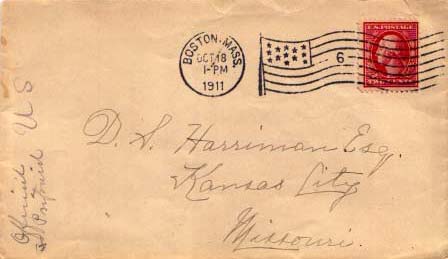 BOSTON, MASS.
OCT 18
1-PM
1911
6
U.S. POSTAGE
TWO CENTS
D. S. Harriman Esq.
Kansas City
Missouri.
U S
Official